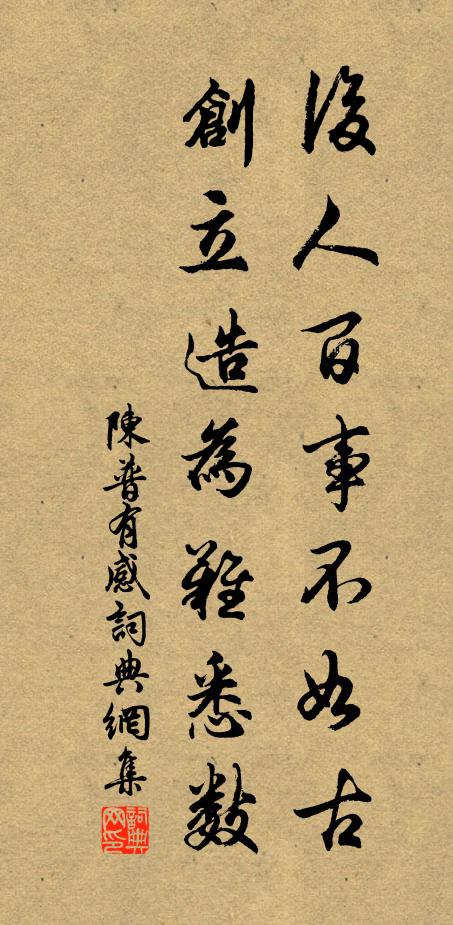 後人百事不如古
創立造為難悉數
陳普有感詞典網集
詞典網印